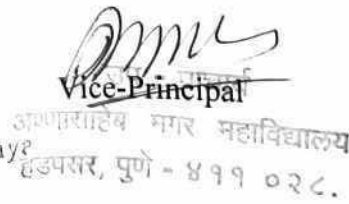 उप प्राचार्य
Vice-Principal
अण्णासाहेब मगर महाविद्यालय
हडपसर, पुणे - ४११ ०२८.